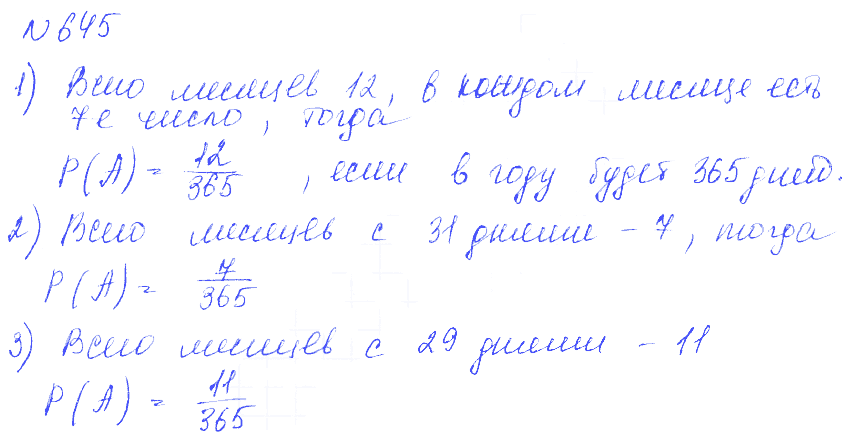 № 645
1) Всего месяцев 12, в каждом месяце есть
7е число, тогда
P(A) = 12/365, если в году будет 365 дней.
2) Всего месяцев с 31 днями - 7, тогда
P(A) = 7/365
3) Всего месяцев с 29 днями - 11
P(A) = 11/365